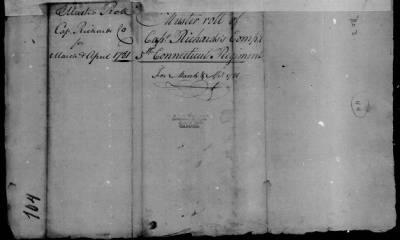 Muster Roll
Cap. Richards Co
for
March & April 1781
Muster roll of
Capt. Richards's Compy
5th Connecticut Regiment
For March & Apl 1781
104